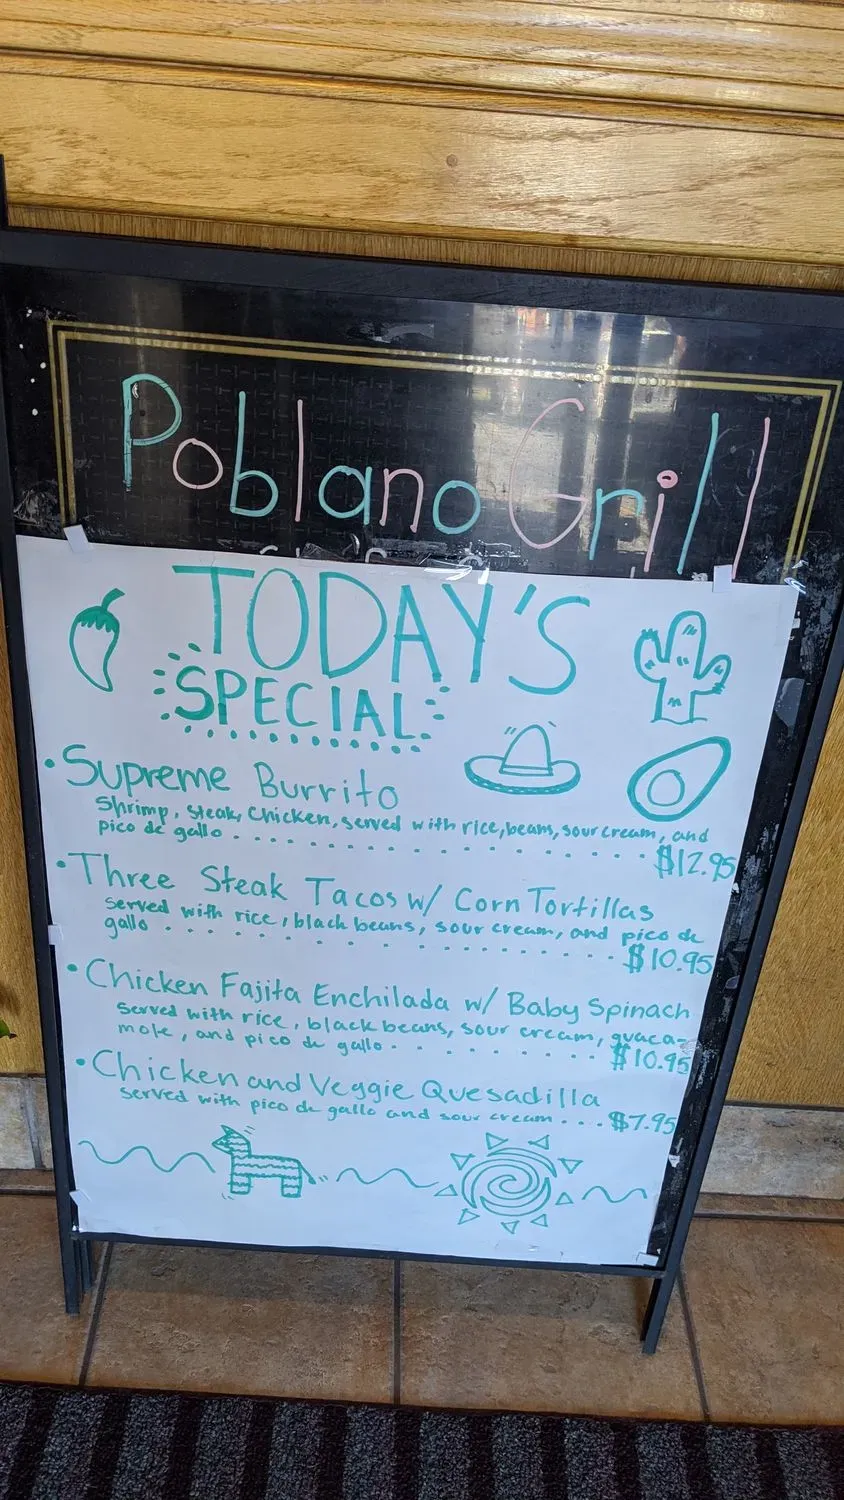 Poblano Grill
TODAY'S
SPECIAL
• Supreme Burrito
Shrimp, Steak, Chicken, served with rice, beans, sour cream, and
pico de gallo . . . . . . . . . . . . . . . . . . $12.95
• Three Steak Tacos w/ Corn Tortillas
Served with rice, black beans, sour cream, and pico de
gallo . . . . . . . . . . . . . . . . . . $10.95
• Chicken Fajita Enchilada w/ Baby Spinach
Served with rice, black beans, sour cream, guaca-
mole, and pico de gallo . . . . . . . . . $10.95
• Chicken and Veggie Quesadilla
Served with pico de gallo and sour cream . . . $7.95